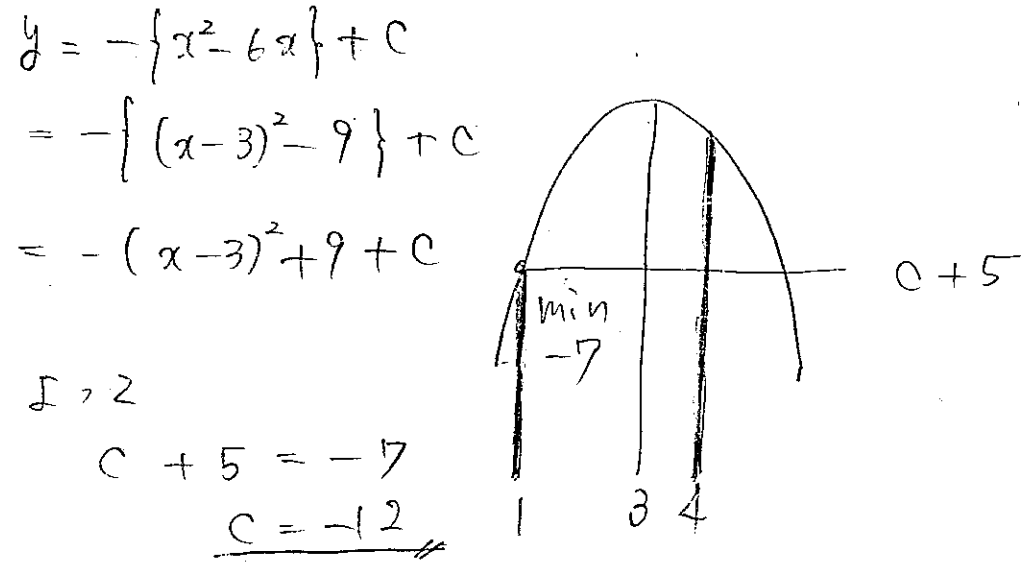 y = -{x²-6x}+C
= -{(x-3)²-9}+C
= -(x-3)²+9+C
よって
C+5=-7
C=-12
C+5
min
-7
1 3 4